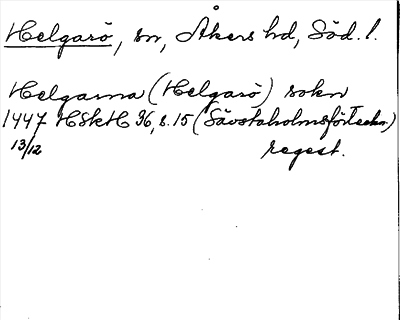 Helgarö, sn, Åkers hd, Söd. l.
Helgarna (Helgarö) sokn
1447 HSkH 36, s. 15 (Sävstaholmsförteckn.)
13/12 regest.